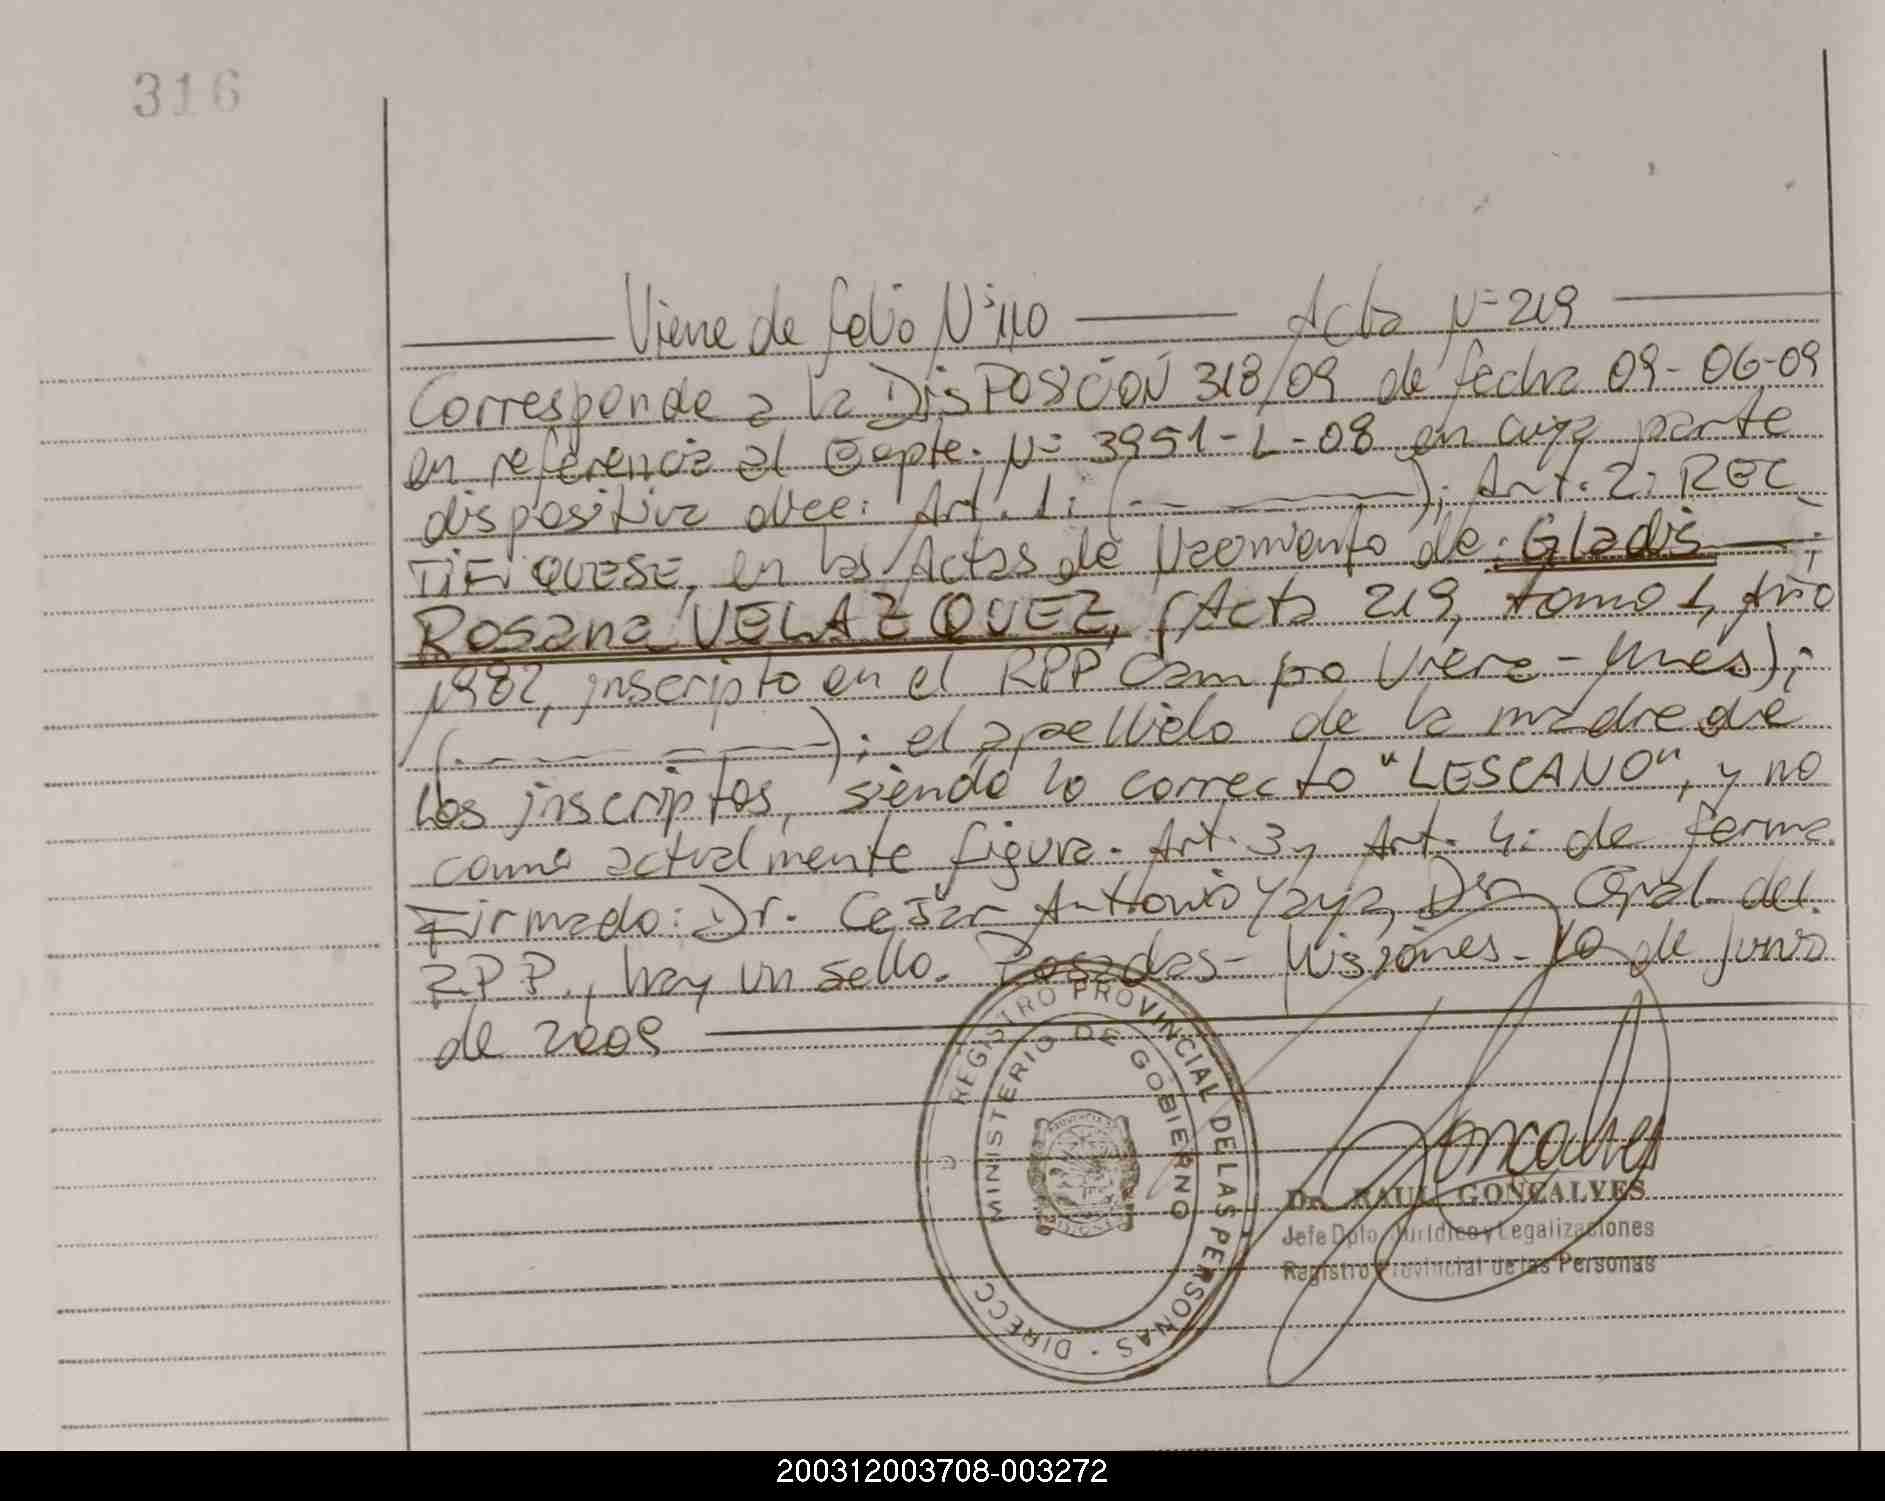 316
Viene de folio N° 110 Acta N° 219
Corresponde a la DISPOSICIÓN 318/09 de fecha 09-06-09
en referencia al Expte. N° 3951-L-08 en cuya parte
dispositiva dice: Art. 1: (— — —); Art. 2: REC
TIFIQUESE, en las Actas de Nacimiento de: Gladis —;
Rosana VELAZQUEZ, (Acta 219, tomo 1, Año
1982, inscripto en el RPP Campo Viera - Mnes);
(— — —); el apellido de la madre de
los inscriptos, siendo lo correcto "LESCANO", y no
como actualmente figura. Art. 3 y Art. 4: de forma.
Firmado: Dr. Cesar Antonio Yaya, Dir. Gral. del
R.P.P., hay un sello. Posadas - Misiones. 10 de Junio
de 2009
DIRECC REGISTRO PROVINCIAL DE LAS PERSONAS
MINISTERIO DE GOBIERNO
Goncalves
Dr. RAUL GONCALVES
Jefe Dpto. Jurídico y Legalizaciones
Registro Provincial de las Personas
200312003708-003272